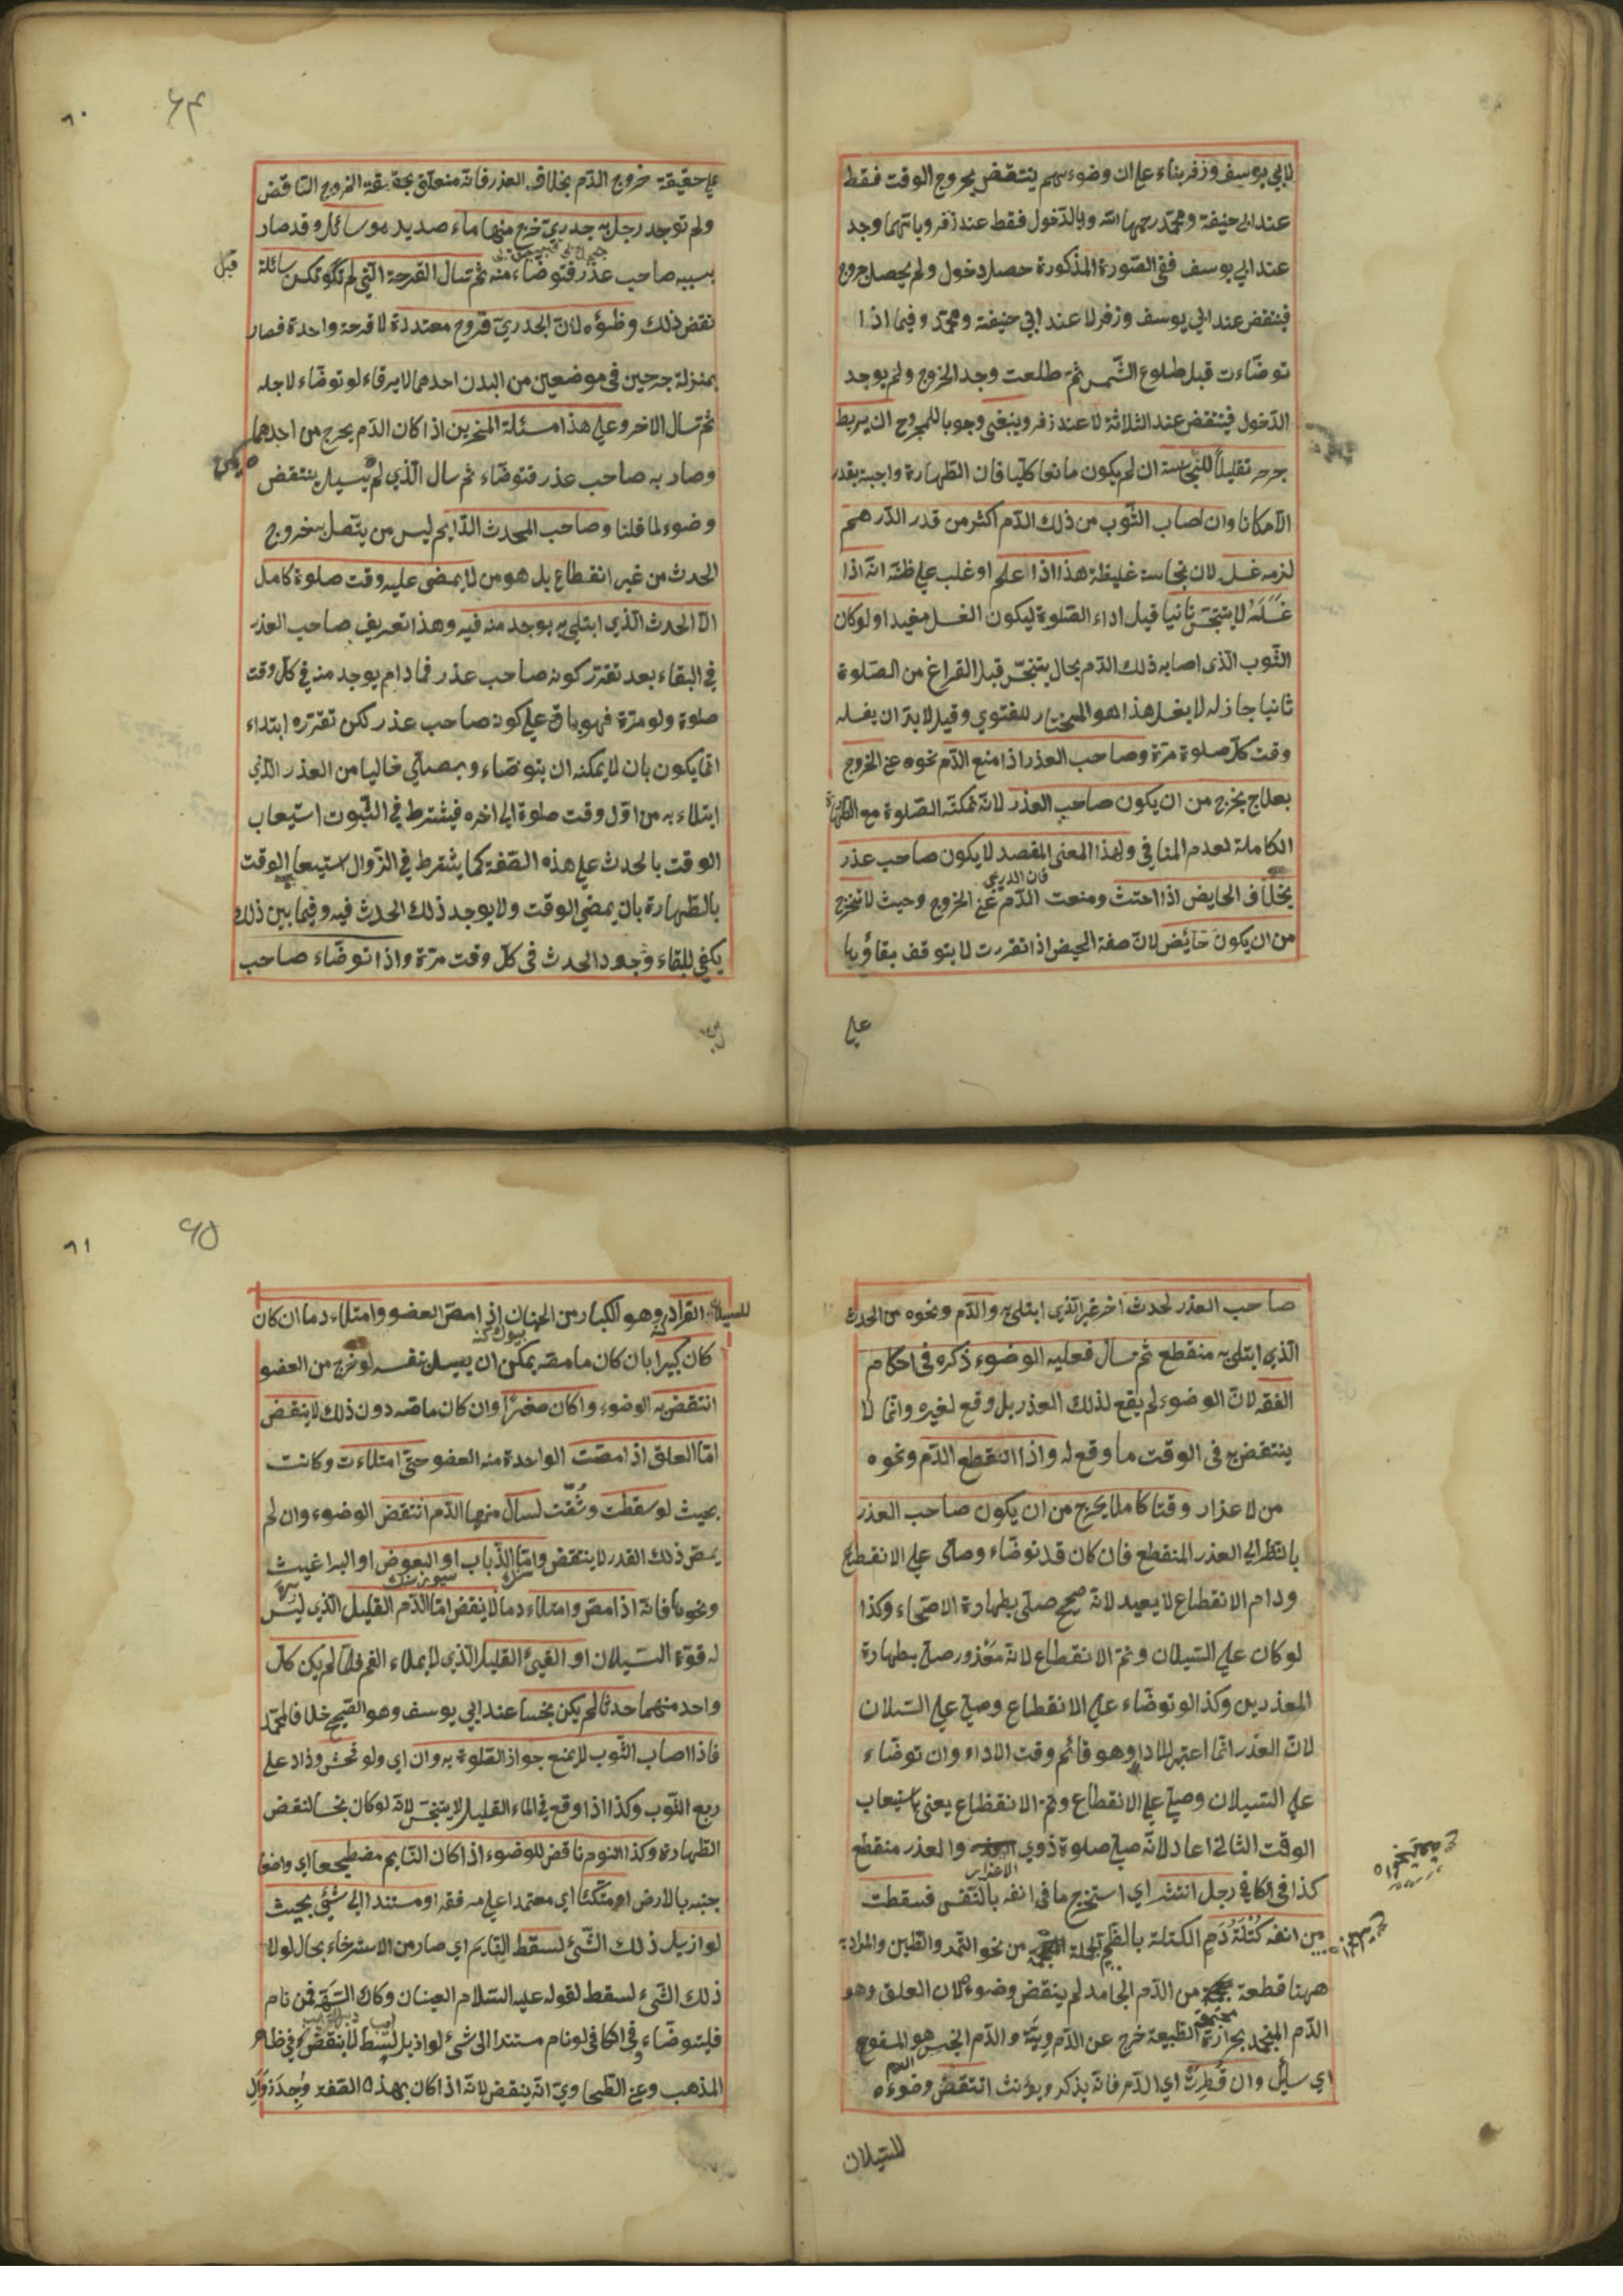 لابي يوسف وزفر بناء على ان وضوءهم ينتقض بخروج الوقت فقط
عند ابي حنيفة ومحمد رحمهما الله وبالدخول فقط عند زفر وبايهما وجد
عند ابي يوسف ففي الصورة المذكورة حصل دخول ولم يحصل خروج
فينتقض عند ابي يوسف وزفر لا عند ابي حنيفة ومحمد وفيما اذا
توضاءت قبل طلوع الشمس ثم طلعت وجد الخروج ولم يوجد
الدخول فينتقض عند الثلاثة لا عند زفر وينبغي وجوبا للمجروح ان يربط
جرحه تقليلا للنجاسة ان لم يكون مانعا كليا فان الطهارة واجبة بقدر
الامكانا وان اصاب الثوب من ذلك الدم اكثر من قدر الدرهم
لزمه غسله لان نجاسة غليظة هذا اذا علم او غلب على ظنه انه اذا
غسله لا يتنجس ثانيا قبل اداء الصلوة ليكون الغسل مفيدا ولو كان
الثوب الذي اصابه ذلك الدم بحال يتنجس قبل الفراغ من الصلوة
ثانيا جاز له لا يغسل هذا هو المختار للفتوي وقيل لا بد ان يغسله
وقت كل صلوة مرة وصاحب العذر اذا منع الدم نحوه عن الخروج
بعلاج يخرج من ان يكون صاحب العذر لانه تمكنه الصلوة مع الطهارة
الكاملة لعدم المنافي ولهذا المعنى المقصد لا يكون صاحب عذر
بخلاف الحايض اذا احتشت ومنعت الدم عن الخروج وحيث لا تخرج
من ان يكون حائض لان صفة الحيض اذا تقررت لا يتوقف بقاؤها
علي
٦٤
٦٠
علي حقيقة خروج الدم بخلاف العذر فانه متعلق بحقيقة الخروج الناقض
ولم توجد رجل به جدري خرج منها ماء صديد هو سائل وقد صار
بسببه صاحب عذر فتوضاء منه ثم تسال القرحة التي لم تكن سائلة
قبل
نقض ذلك وضوءه لان الجدري قروح متعددة لا قرحة واحدة فصار
بمنزلة جرحين في موضعين من البدن احدهما لا يرقاء لو توضاء لاجله
ثم سال الاخر وعلي هذا مسئلة المنخرين اذا كان الدم يخرج من احدهما
وصار به صاحب عذر فتوضاء ثم سال الذي لم يسيل ينتقض
وضوء لما قلنا وصاحب الحدث الدايم ليس من يتصل به خروج
الحدث من غير انقطاع بل هو من لا يمضى عليه وقت صلوة كامل
الا الحدث الذي ابتلي به يوجد منه فيه وهذا تعريف صاحب العذر
في البقاء بعد تقرر كونه صاحب عذر فمادام يوجد منه في كل وقت
صلوة ولو مرة فهو باق علي كونه صاحب عذر لكن تقرره ابتداء
انما يكون بان لا يمكنه ان يتوضاء ويصلي خاليا من العذر الذي
ابتلاء به من اول وقت صلوة الي اخره فيشترط في الثبوت استيعاب
الوقت بالحدث علي هذه الصفة كما يشترط في الزوال استيعاب الوقت
بالطهارة بان يمضي الوقت ولا يوجد ذلك الحدث فيه وفيما بين ذلك
يكفي للبقاء وجود الحدث في كل وقت مرة واذا توضاء صاحب
صاحب العذر لحدث اخر غير الذي ابتلي به والدم ونحوه من الحدث
الذي ابتلي به منقطع ثم سال فعليه الوضوء ذكره في احكام
الفقه لان الوضوء لم يقع لذلك العذر بل وقع لغيره وانما لا
ينتقض به في الوقت ما وقع له واذا انقطع الدم ونحوه
من لاعذار وقتا كاملا يخرج من ان يكون صاحب العذر
بالنظر الي العذر المنقطع فان كان قد توضاء وصلى علي الانقطاع
ودام الانقطاع لا يعيد لانه صحيح صلى بطهارة الاصحاء وكذا
لو كان علي السيلان وتم الانقطاع لانه معذور صلى بطهارة
المعذرين وكذا لو توضاء علي الانقطاع وصلي علي السيلان
لان العذر انما اعتبر للاداء وهو قائم وقت الاداء وان توضاء
علي السيلان وصلي علي الانقطاع وتم الانقطاع يعني باستيعاب
الوقت الثاني اعاد لانه صلي صلوة ذوي والعذر منقطع
الاعذار
كذا في الكافي رجل انتثر اي استخرج ما في انفه بالنفس فسقطت
من انفه كتلة دم الكتلة بالضم الجملة من نحو التمر والطين والمراد به
ههنا قطعة من الدم الجامد لم ينقض وضوءه لان العلق وهو
الدم المنجمد بحرارة الطبيعة خرج عن الدموية والدم النجس هو المسفوح
اي سايل وان قطرت اي الدم فانه يذكر ويؤنث انتقض وضوءه
للسيلان
٦٥
٦١
للسيلان القراد وهو الكبار من الحمنان اذا مص العضو وامتلاء دما ان كان
كان كبيرا بان كان ما مصه يمكن ان يسيل نفسه لو خرج من العضو
انتقض به الوضوء وا كان صغيرا وان كان ما مصه دون ذلك لا ينقض
اما العلق اذا مصت الواحدة منه العضو حتى امتلاءت وكانت
بحيث لو سقطت وشقت لسال منها الدم انتقض الوضوء وان لم
يمص ذلك القدر لا ينتقض واما الذباب او البعوض او البراغيث
ونحوها فانه اذا مص وامتلاء دما لا ينقض اما الدم القليل الذي ليس
له قوة السيلان او القيئ القليل الذي لا يملاء الفم فلما لم يكن كل
واحد منهما حدثا لم يكن نجسا عند ابي يوسف وهو الصحيح خلافا لمحمد
فاذا اصاب الثوب لا يمنع جواز الصلوة به وان اي ولو فحش وزاد علي
ربع الثوب وكذا اذا وقع في الماء القليل لا يتنجس لانه لو كان نجسا لنقض
الطهارة وكذا النوم ناقض للوضوء اذا كان النايم مضطجعا اي واضعا
جنبه بالارض او متكئا اي معتمدا علي مرفقه او مستندا الي شئ بحيث
لو ازيل ذلك الشئ لسقط النايم اي صار من الاسترخاء بحال لولا
ذلك الشيء لسقط لقوله عليه السلام العينان وكاء السه فمن نام
فليتوضاء وفي الكافي لو نام مستندا الى شئ لو ازيل لسقط لا ينقض في ظاهر
المذهب وعن الطحاوي انه ينقض لانه اذا كان بهذه الصفة وجد زوال